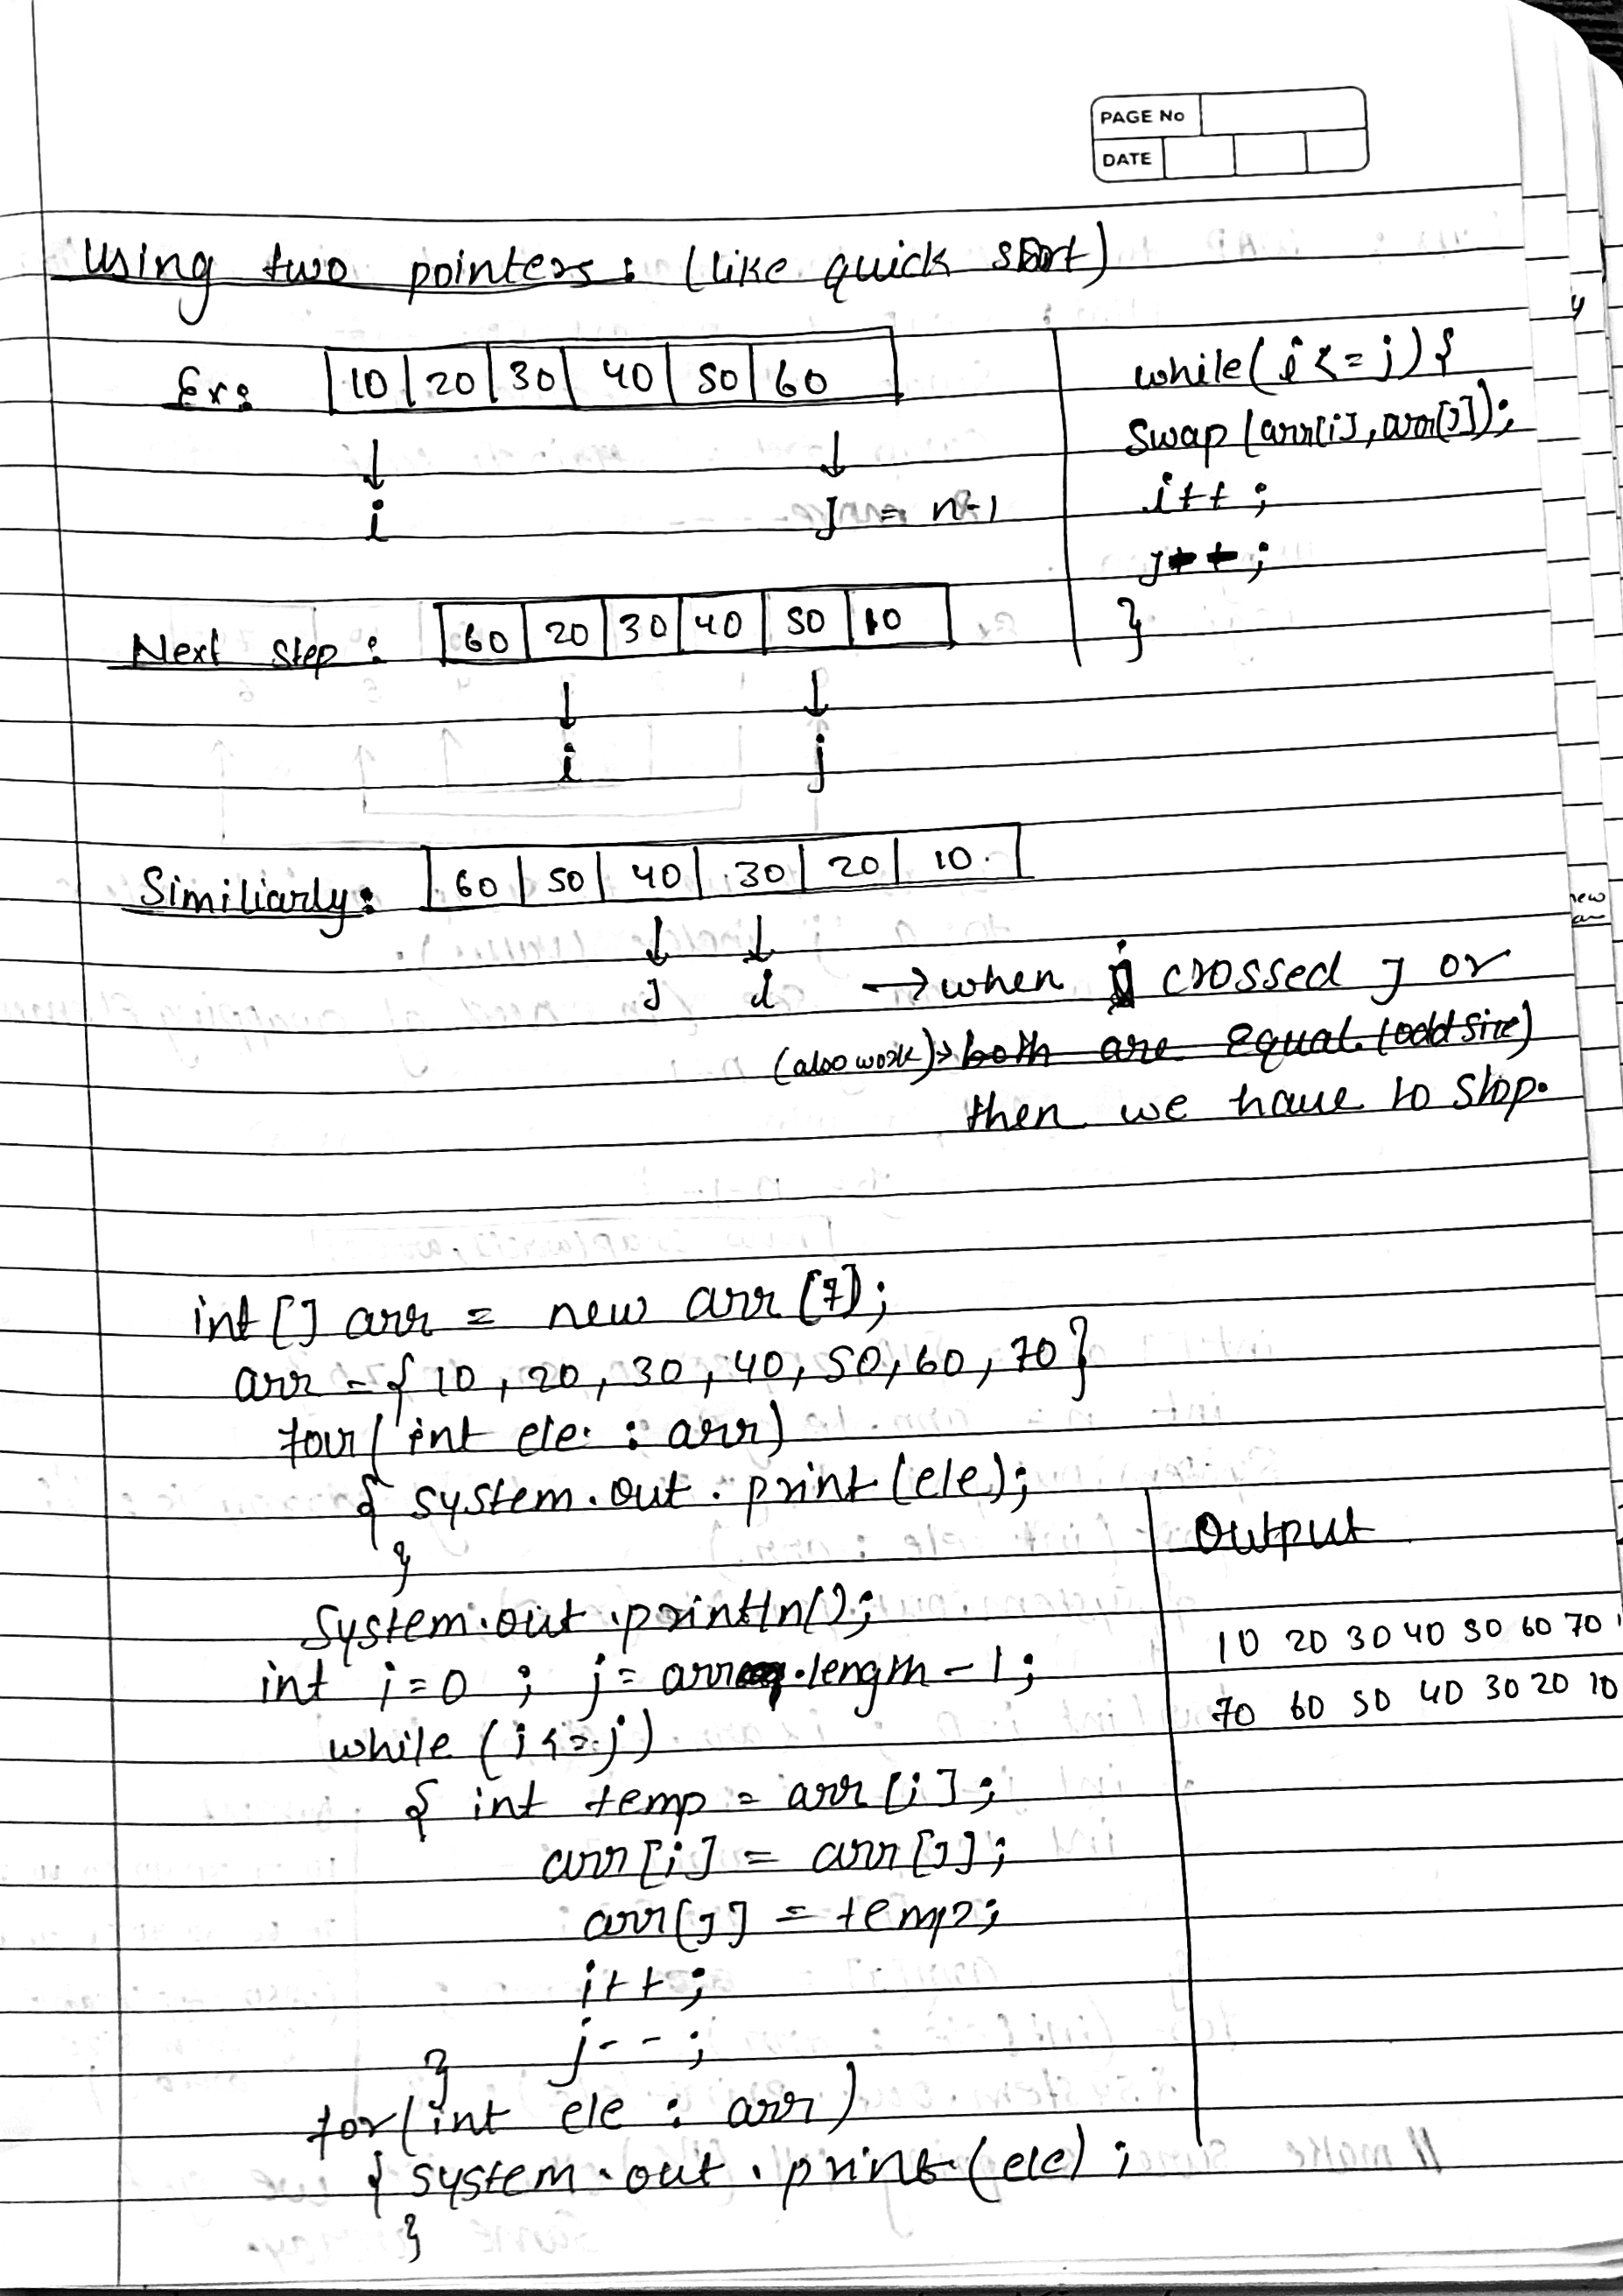 PAGE No
DATE
Using two pointers : (like quick sort)
Ex: 10 20 30 40 50 60
i j = n-1
while(i <= j){
swap(arr[i], arr[j]);
i++;
}
Next Step : 60 20 30 40 50 10
i j
Similiarly : 60 50 40 30 20 10
j i → when i crossed j or
(also work)→ both are equal (odd size)
then we have to stop.
int [] arr = new arr[7];
arr = { 10, 20, 30, 40, 50, 60, 70 }
for( int ele : arr)
{ system.out.print(ele);
}
System.out.println();
int i=0 ; j= arr.length-1;
while (i<=j)
{ int temp = arr[i];
arr[i] = arr[j];
arr[j] = temp;
i++;
j--;
}
for(int ele : arr)
{ system.out.print(ele) ;
}
Output
10 20 30 40 50 60 70
70 60 50 40 30 20 10
y
new